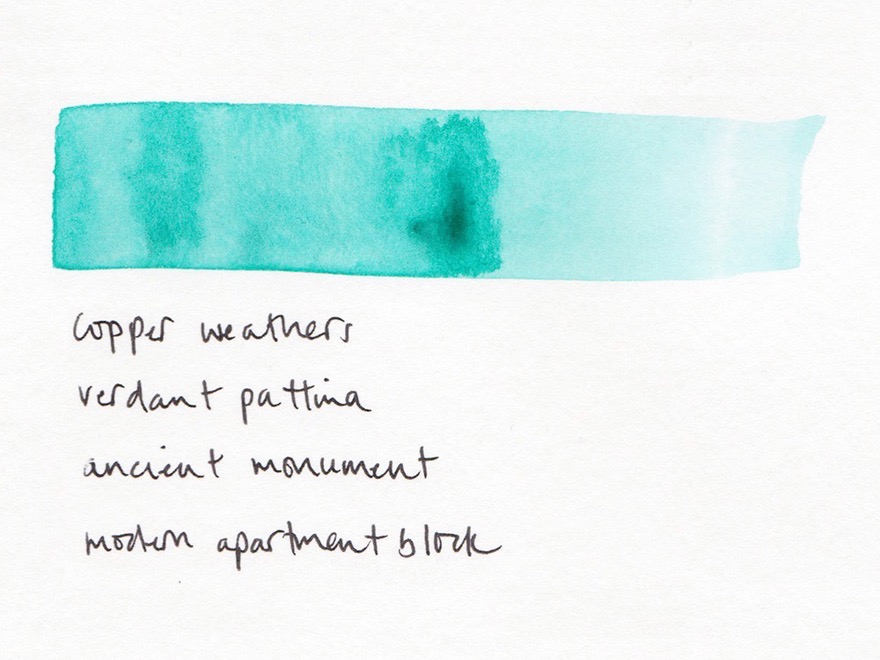 copper weathers
verdant pattina
ancient monument
modern apartment block